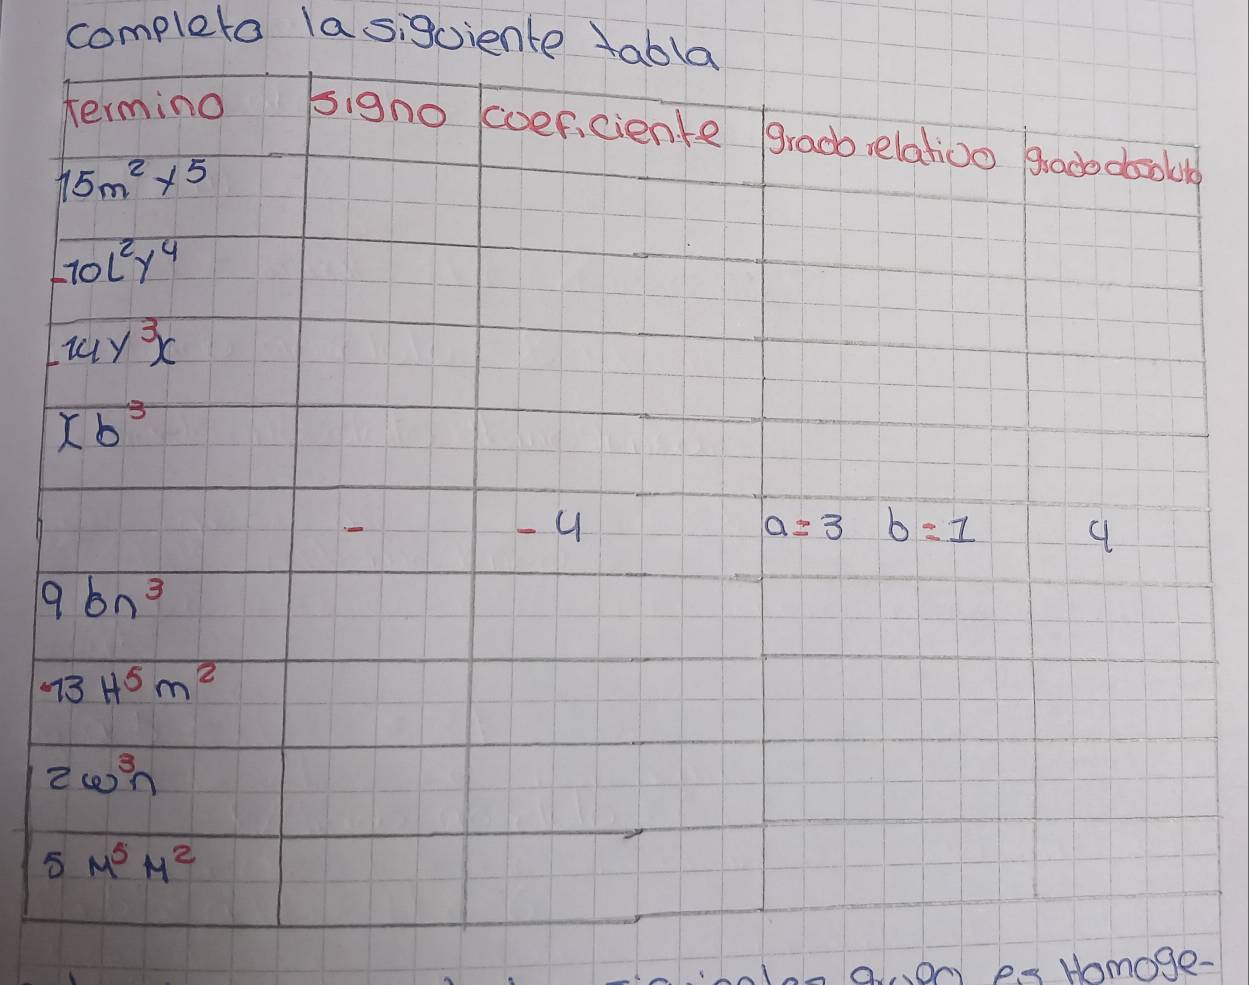 completa la siguiente tabla
Termino signo coeficiente grado relativo grado absoluto
15m² y⁵
-10L²y⁴
-14y³x
xb³
- -4 a=3 b=1 4
9bn³
-13H⁵m²
2w³n
5M⁵M²
es Homoge-